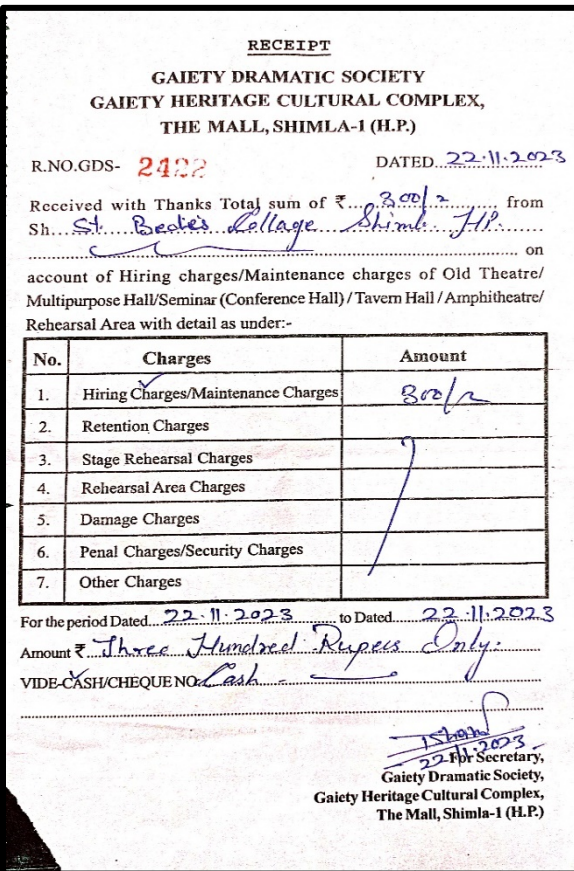 RECEIPT
GAIETY DRAMATIC SOCIETY
GAIETY HERITAGE CULTURAL COMPLEX,
THE MALL, SHIMLA-1 (H.P.)
R.NO.GDS- 2422 DATED...22.11.2023
Received with Thanks Total sum of ₹....300/-......... from
Sh... St. Bede's Collage Shimla HP.......
.......... on
account of Hiring charges/Maintenance charges of Old Theatre/
Multipurpose Hall/Seminar (Conference Hall) / Tavern Hall / Amphitheatre/
Rehearsal Area with detail as under:-
No. Charges Amount
1. Hiring Charges/Maintenance Charges 300/-
2. Retention Charges
3. Stage Rehearsal Charges
4. Rehearsal Area Charges
5. Damage Charges
6. Penal Charges/Security Charges
7. Other Charges
For the period Dated...22.11.2023........ to Dated......22.11.2023
Amount ₹ Three Hundred Rupees Only.
VIDE-CASH/CHEQUE NO. Cash -
22/11/2023
For Secretary,
Gaiety Dramatic Society,
Gaiety Heritage Cultural Complex,
The Mall, Shimla-1 (H.P.)